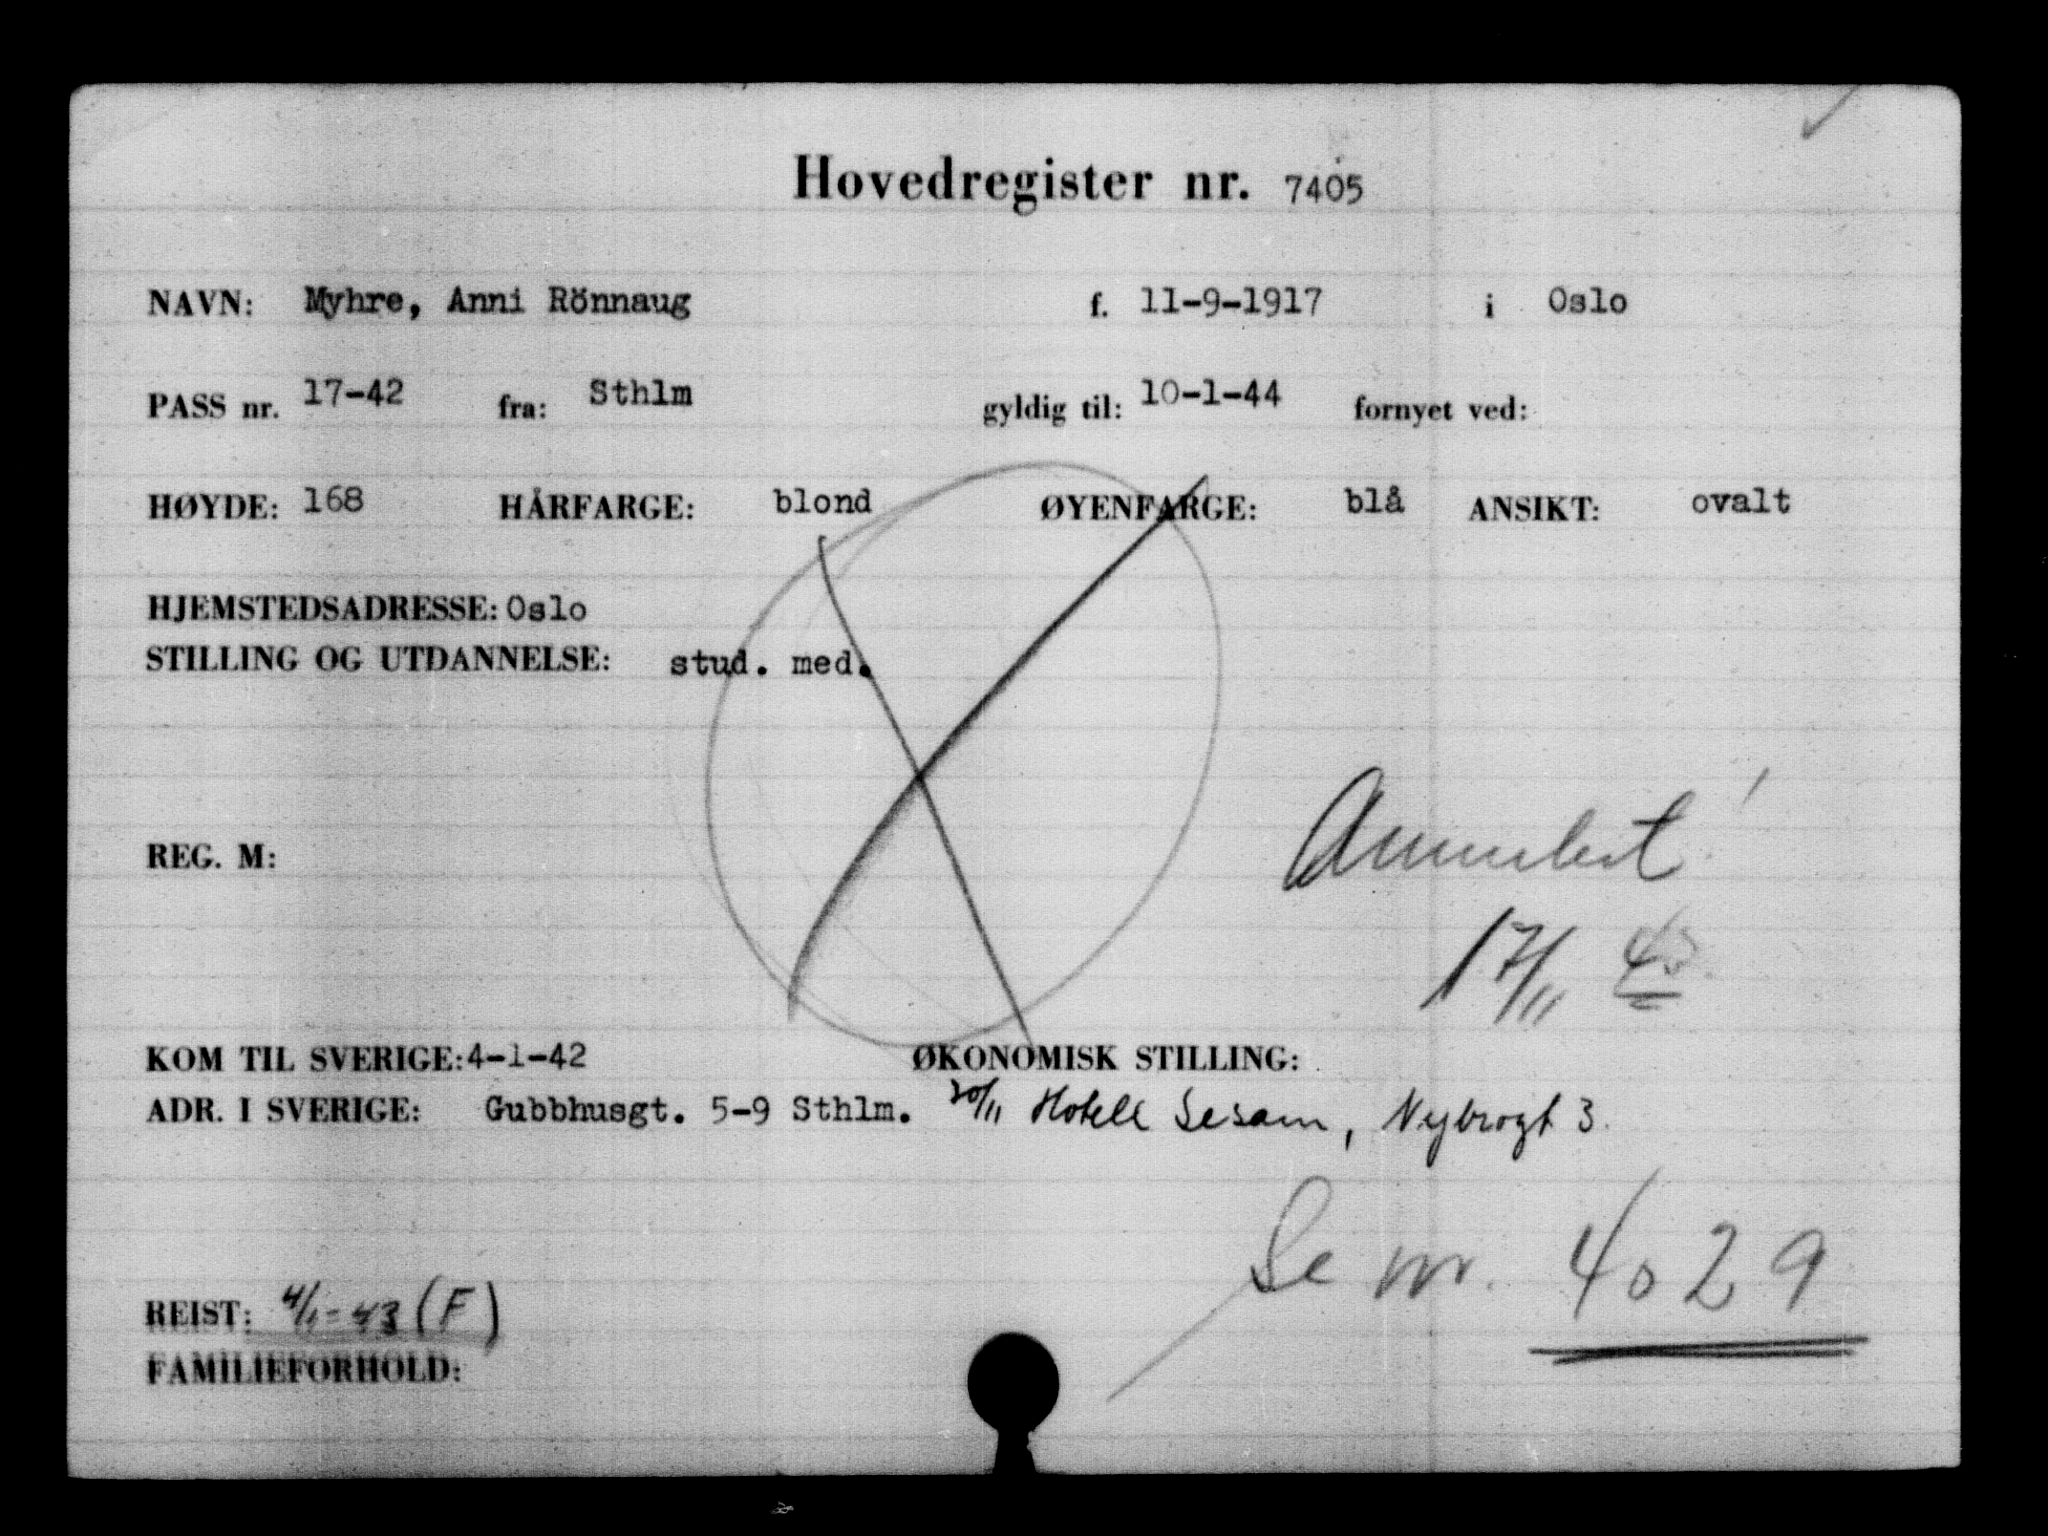 Hovedregister nr. 7405
NAVN: Myhre, Anni Rönnaug f. 11-9-1917 i Oslo
PASS nr. 17-42 fra: Sthlm gyldig til: 10-1-44 fornyet ved:
HØYDE: 168 HÅRFARGE: blond ØYENFARGE: blå ANSIKT: ovalt
HJEMSTEDSADRESSE: Oslo
STILLING OG UTDANNELSE: stud. med.
Annulert!
REG. M:
17/11
KOM TIL SVERIGE: 4-1-42 ØKONOMISK STILLING:
ADR. I SVERIGE: Gubbhusgt. 5-9 Sthlm. 20/11 Hotell Sesam, Nybrogt 3.
Se nr. 4029
REIST: 4/1-43 (F)
FAMILIEFORHOLD: